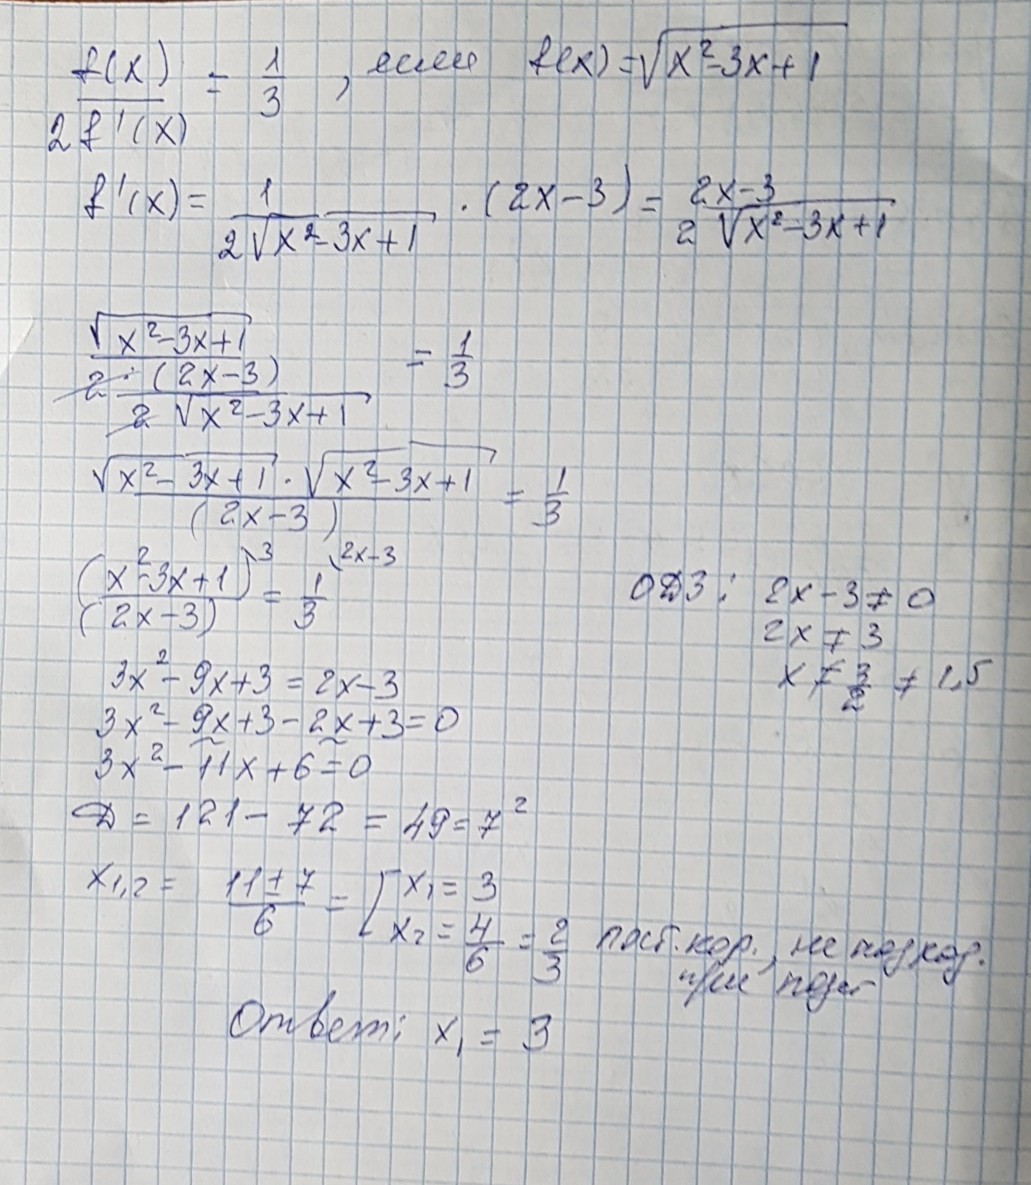 f(x)/2f'(x) = 1/3, если f(x) = √(x²-3x+1)
f'(x) = 1/(2√(x²-3x+1)) · (2x-3) = (2x-3)/(2√(x²-3x+1))
√(x²-3x+1)/(2·(2x-3)/(2√(x²-3x+1))) = 1/3
√(x²-3x+1)·√(x²-3x+1)/(2x-3) = 1/3
(x²-3x+1)/(2x-3) ⁾³ = 1/3 ⁽²ˣ⁻³
ОДЗ: 2x-3≠0
2x≠3
x≠3/2≠1,5
3x²-9x+3=2x-3
3x²-9x+3-2x+3=0
3x²-11x+6=0
D = 121-72 = 49 = 7²
x₁,₂ = (11±7)/6 = [x₁ = 3
x₂ = 4/6 = 2/3 пост. кор., не подход.
при
Ответ: x₁ = 3